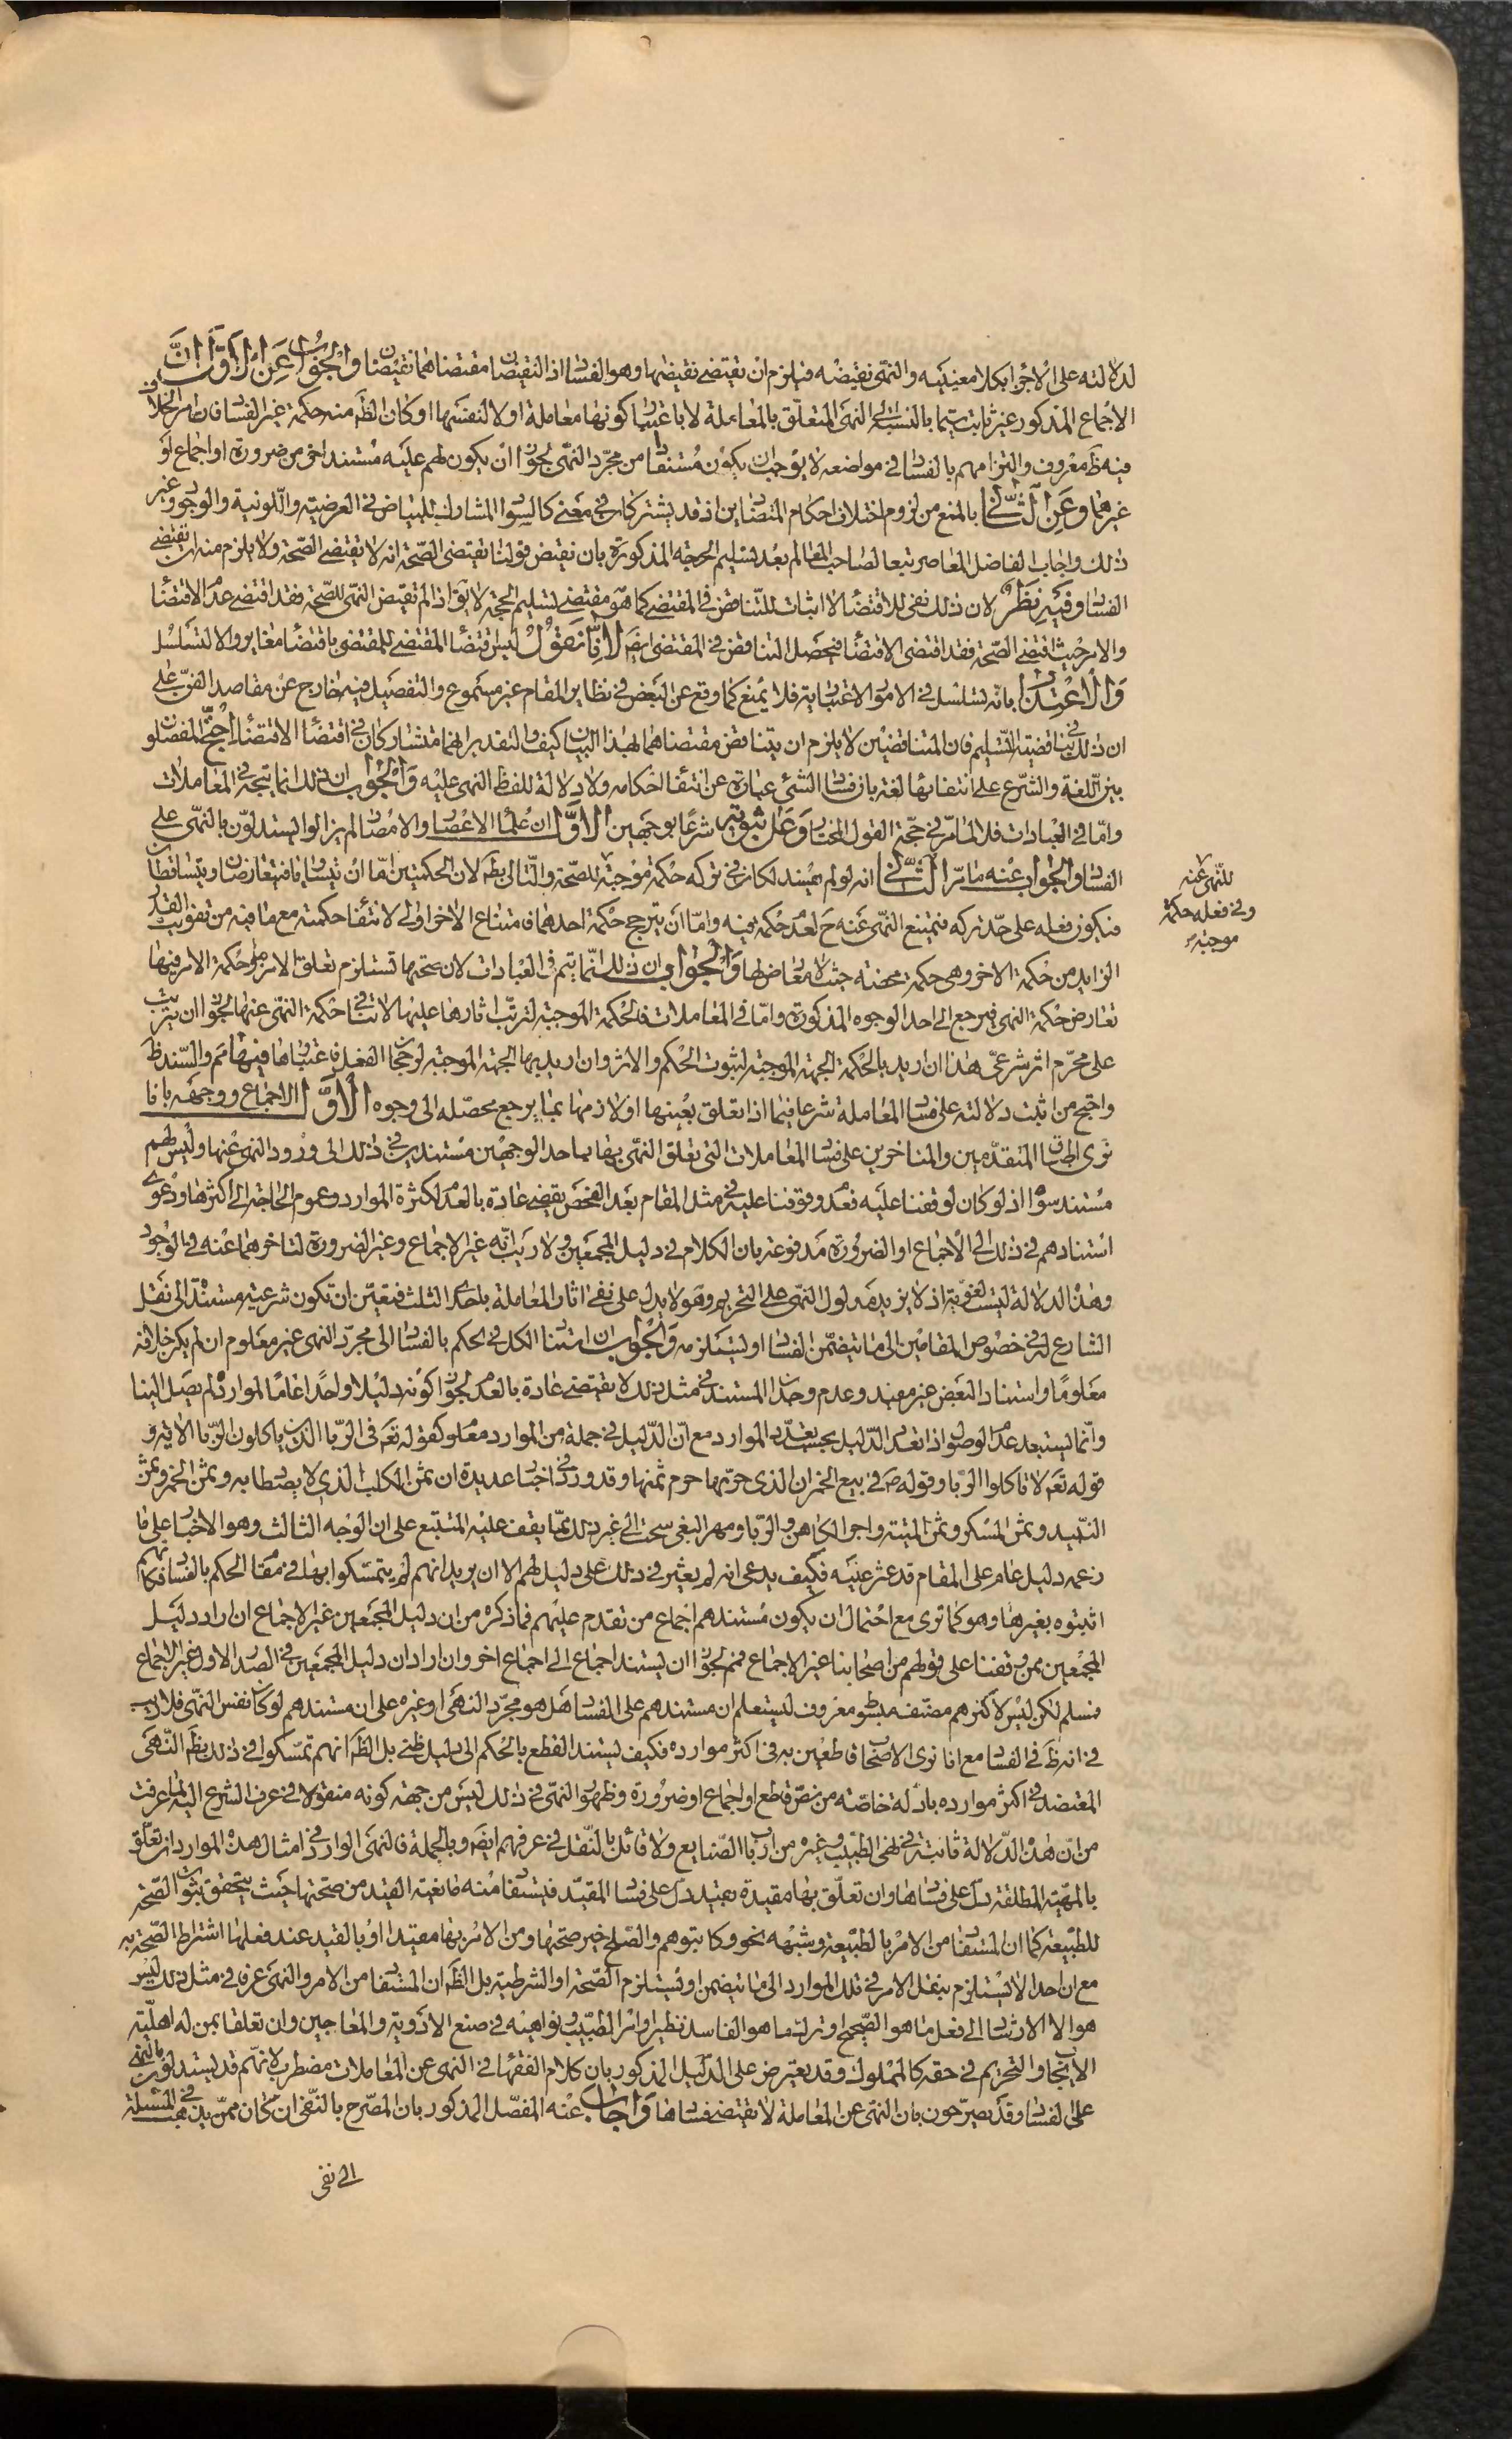 لدلالته على الاجزا بكلا معينيه والنهى نقيضه فيلزم ان تقيتضى نقيضها وهو الفساد اذ النقيضان مقتضاهما نقيضان والجواب عن الاول ان
الاجماع المذكور غير ثابت سيما بالنسبة الى النهى المتعلق بالمعاملة لا باعتبار كونها معاملة اولا لنفسها او كان الظ منه حكمة غير الفساد فان امر الخلاف
فيه ظ معروف والتزامهم بالفساد في مواضعه لا يوجب ان يكون مستفادا من مجرد النهى لجواز ان يكون لهم عليه مستند اخر من ضرورة او اجماع او
غيرهما وعن الثانى بالمنع من لزوم اختلاف احكام المتضادين اذ قد يشتركان في معنى كالسواد المشارك للبياض في العرضية واللونية والوجود وغير
ذلك واجاب الفاضل المعاصر تبعا لصاحب المعالم بعد تسليم الحجة المذكورة بان نقيض قولنا تقيتضى الصحة انه لا تقيتضى الصحة ولا يلزم منه ان تقيتضى
الفساد وفيه نظر لان ذلك نفى للاقتضاء لا اثبات للتناقض في المقتضى كما هو مقتضى تسليم الحجة لا يق اذا لم تقيتض النهى للصحة فقد اقتضى عدم الاقتضاء
والامر حيث اقتضى الصحة فقد اقتضى الاقتضاء فيحصل التناقض في المقتضى ايض لانا نقول ليس اقتضاء المقتضى للمقتضى باقتضاء مغاير والا لتسلسل
والاعتذار بانه تسلسل في الامور الاعتبارية فلا يمنع كما وقع عن البعض في نظاير المقام غير مسموع والتفصيل فيه خارج عن مقاصد الفن على
ان ذلك ينافي قضية التسليم فان المتناقضين لا يلزم ان يتناقض مقتضاهما لهذا البيان كيف والتقدير انهما متشاركان في اقتضاء الاقتضاء احتج المفصلون
بين اللغة والشرع على انتفائها لغة بان فساد الشئ عبارة عن انتفاء احكامه ولا دلالة للفظ النهى عليه والجواب ان ذلك انما يتجه في المعاملات
واما في العبادات فلا لما مر في حجة القول المختار وعلى ثبوته شرعا بوجهين الاول ان علماء الاعصار والامصار لم يزالوا يستدلون بالنهى على
الفساد والجواب عنه ما مر الثانى انه لو لم يفسد لكان في تركه حكمة موجبة للصحة والتالى بط لان الحكمتين اما ان يتساويا فيتعارضان ويتساقطان
فيكون فعله على حد تركه فيمتنع النهى عنه ح لعدم حكمة فيه واما ان يترجح حكمة احدهما فامتناع الاخر اولى لانتفاء حكمته مع ما فيه من تفويت القدر
الزايد من حكمة الاخر وهى حكمة محضة حيث لا معارض لها والجواب ان ذلك انما يتم في العبادات لان صحتها تستلزم تعلق الامر بها وحكمة الامر فيها
تعارض حكمة النهى فيرجع الى احد الوجوه المذكورة واما في المعاملات فالحكمة الموجبة لترتب اثارها عليها لا تنافي حكمة النهى عنها لجواز ان يترتب
على محرم اثر شرعى هذا ان اريد بالحكمة الجهة الموجبة لثبوت الحكم والاثر وان اريد بها الجهة الموجبة لرجحان الفعل فاعتبارها فيها مم والسند ظ
واحتج من اثبت دلالته على فساد المعاملة شرعا فيما اذا تعلق بعينها او لازمها بما يرجع محصله الى وجوه الاول الاجماع ووجهه بانا
نرى اطباق المتقدمين والمتاخرين على فساد المعاملات التى تعلق النهى بها باحد الوجهين مستندين في ذلك الى ورود النهى عنها وليس لهم
مستند سواه اذ لو كان لوقفنا عليه فعدم وقوفنا عليه في مثل المقام بعد الفحص يقضى عادة بالعدم لكثرة الموارد وعموم الحاجة الى اكثرها ودعوى
استنادهم في ذلك الى الاجماع او الضرورة مدفوعة بان الكلام في دليل المجمعين ولا ريب انه غير الاجماع وغير الضرورة لتاخرهما عنه في الوجود
وهذه الدلالة ليست لغوية اذ لا يزيد مدلول النهى على التحريم وهو لا يدل على نفى اثار المعاملة باحدى الثلث فتعين ان تكون شرعية مستندة الى نقل
الشارع له في خصوص المقامين الى ما يتضمن الفساد او يستلزمه والجواب ان استناد الكل في الحكم بالفساد الى مجرد النهى غير معلوم ان لم يكن خلافه
معلوما واستناد البعض غير مفيد وعدم وجدان المستند في مثل ذلك لا يقتضى عادة بالعدم لجواز كونه دليلا واحدا عاما لموارده لم يصل الينا
وانما يستبعد عدم الوصول اذا تعدد الدليل بحسب تعدد الموارد مع ان الدليل في جملة من الموارد معلوم كقوله تعم في الربا الذين ياكلون الربا الاية و
قوله تعم لا تاكلوا الربا وقوله ص في بيع الخمر ان الذى حرمها حرم ثمنها وقد ورد في اخبار عديدة ان ثمن الكلب الذى لا يصطاد به وثمن الخمر وثمن
النبيد وثمن المسكر وثمن الميتة واجر الكاهن والربا ومهر البغى سحت الى غير ذلك مما يقف عليه المتتبع على ان الوجه الثالث وهو الاخبار على ما
زعمه دليل عام على المقام قد عثر عليه فكيف يدعى انه لم يعثر في ذلك على دليل لهم الا ان يريد انهم لم يتمسكوا بها في مقام الحكم بالفساد فكانهم
اثبتوه بغيرها وهو كما ترى مع احتمال ان يكون مستندهم اجماع من تقدم عليهم فما ذكره من ان دليل المجمعين غير الاجماع ان اراد دليل
المجمعين ممن وقفنا على قولهم من اصحابنا غير الاجماع فمم لجواز ان يستند اجماع الى اجماع اخر وان اراد ان دليل المجمعين في الصدر الاول غير الاجماع
فمسلم لكن ليس لاكثرهم مصنف مبسوط معروف ليستعلم ان مستندهم على الفساد هل هو مجرد النهى او غيره على ان مستندهم لو كان نفس النهى فلا ريب
في انه ظ في الفساد مع انا نرى الاصحاب قاطعين به في اكثر موارده فكيف يستند القطع بالحكم الى دليل ظنى بل الظ انهم تمسكوا في ذلك بظ النهى
المعتضد في اكثر موارده بادلة خاصة من نص قاطع او اجماع او ضرورة وظهور النهى في ذلك ليس من جهة كونه منقولا في عرف الشرع اليه لما عرفت
من ان هذه الدلالة ثابتة في نهى الطبيب وغيره من ارباب الصنايع ولا قائل بالنقل في عرفهم ايض وبالجملة فالنهى الوارد في امثال هذه الموارد ان تعلق
بالمهية المطلقة دل على فسادها وان تعلق بها مقيدة بقيد دل على فساد المقيد فيستفاد منه مانعية القيد من صحتها حيث يتحقق ثبوت الصحة
للطبيعة كما ان المستفاد من الامر بالطبيعة وشبهه نحو وكاتبوهم والصلح خير صحتها ومن الامر بها مقيدا او بالقيد عند فعلها اشتراط الصحة به
مع ان احدا لا يستلزم بنقل الامر في تلك الموارد الى ما يتضمن او يستلزم الصحة او الشرطية بل الظ ان المستفاد من الامر والنهى عرفا في مثل ذلك ليس
هو الا الارشاد الى فعل ما هو الصحيح او ترك ما هو الفاسد نظير اوامر الطبيب ونواهيه في صنع الادوية والمعاجين وان تعلقا بمن له اهلية
الايجاب والتحريم في حقه كالمملوك وقد يعترض على الدليل المذكور بان كلام الفقهاء في النهى عن المعاملات مضطرب لانهم قد يستدلون بالنهى
على الفساد وقد يصرحون بان النهى عن المعاملة لا يقتضى فسادها واجاب عنه المفصل المذكور بان المصرح بالنفى ان كان ممن يذهب في المسئلة
الى نفى
للنهى عنه
وفي فعله حكمة
موجبة